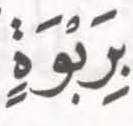 بِرَبْوَةٍ